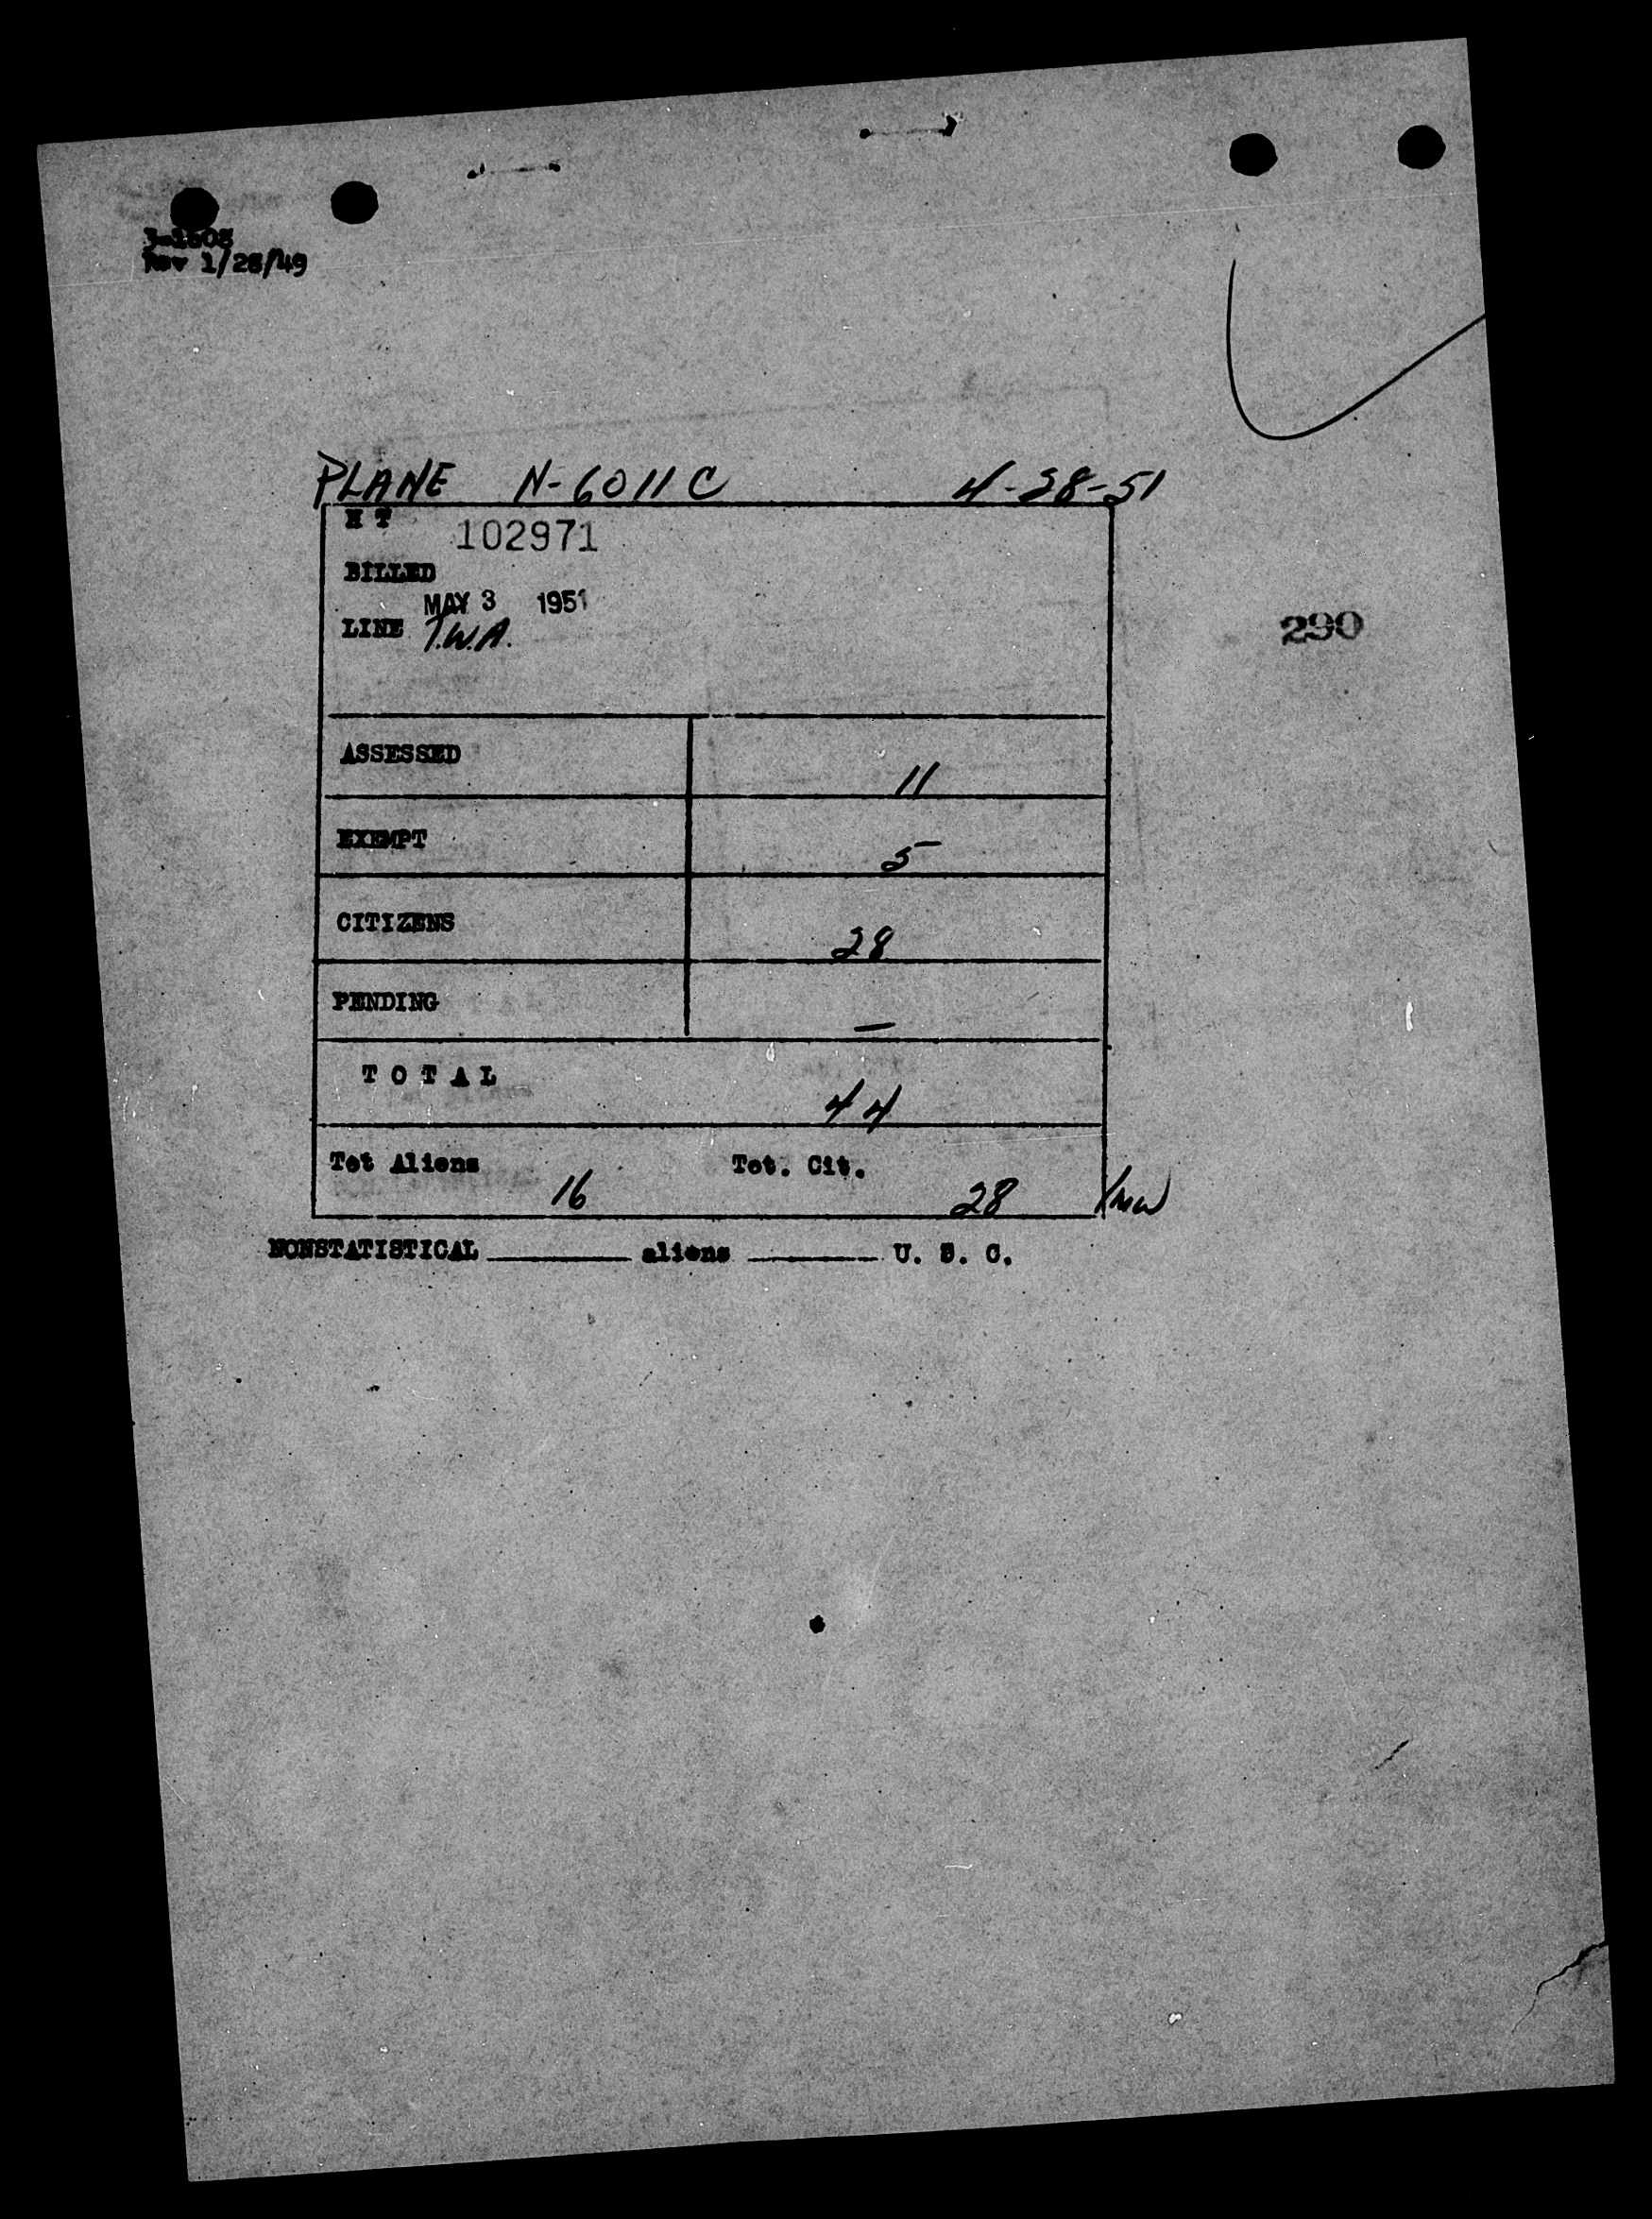 Rev 1/28/49
PLANE N-6011C 4-28-51
H T 102971
BILLED
MAY 3 1951
LINE T.W.A.
290
ASSESSED 11
EXEMPT 5
CITIZENS 28
PENDING —
T O T A L 44
Tot Aliens 16 Tot. Cit. 28
NONSTATISTICAL ________ aliens ________ U. S. C.